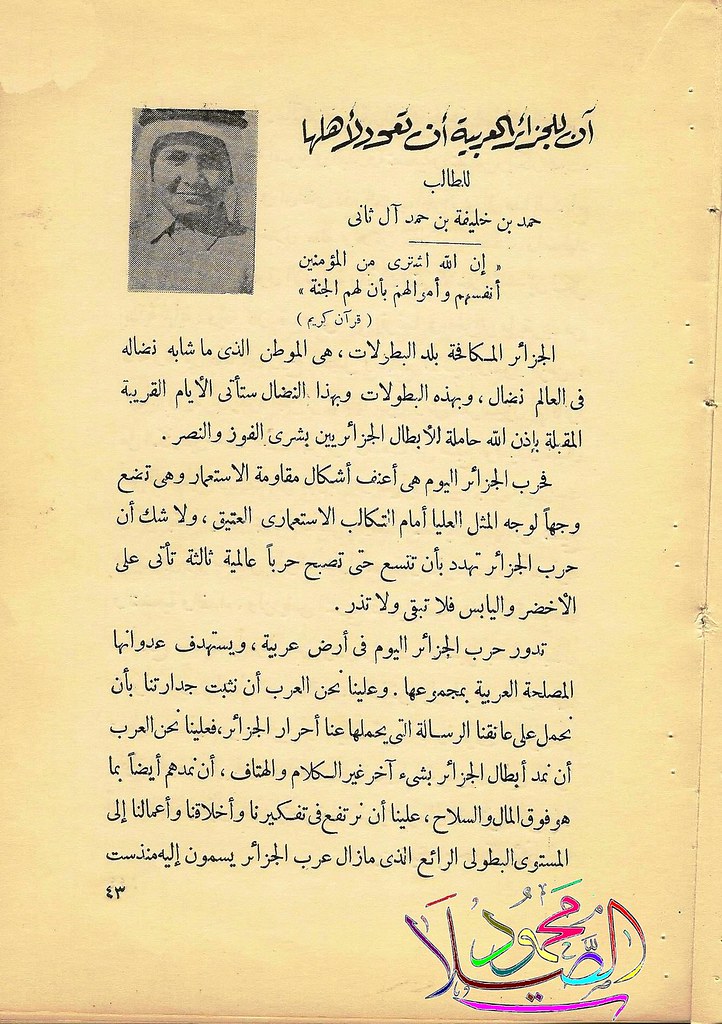 آن للجزائر العربية أن تعود لأهلها
للطالب
حمد بن خليفة بن حمد آل ثانى
« إن الله اشترى من المؤمنين
أنفسهم وأموالهم بأن لهم الجنة »
( قرآن كريم )
الجزائر المكافحة بلد البطولات ، هى الموطن الذى ما شابه نضاله
فى العالم نضال ، وبهذه البطولات وبهذا النضال ستأتى الأيام القريبة
المقبلة بإذن الله حاملة للأبطال الجزائريين بشرى الفوز والنصر .
فحرب الجزائر اليوم هى أعنف أشكال مقاومة الاستعمار وهى تضع
وجهاً لوجه المثل العليا أمام التكالب الاستعمارى العتيق ، ولا شك أن
حرب الجزائر تهدد بأن تتسع حتى تصبح حرباً عالمية ثالثة تأتى على
الأخضر واليابس فلا تبقى ولا تذر .
تدور حرب الجزائر اليوم فى أرض عربية ، ويستهدف عدوانها
المصلحة العربية بمجموعها . وعلينا نحن العرب أن نثبت جدارتنا بأن
نحمل على عاتقنا الرسالة التى يحملها عنا أحرار الجزائر ، فعلينا نحن العرب
أن نمد أبطال الجزائر بشىء آخر غير الكلام والهتاف ، أن نمدهم أيضاً بما
هو فوق المال والسلاح ، علينا أن نرتفع فى تفكيرنا وأخلاقنا وأعمالنا إلى
المستوى البطولى الرائع الذى مازال عرب الجزائر يسمون إليه منذ ست
٤٣
محمود